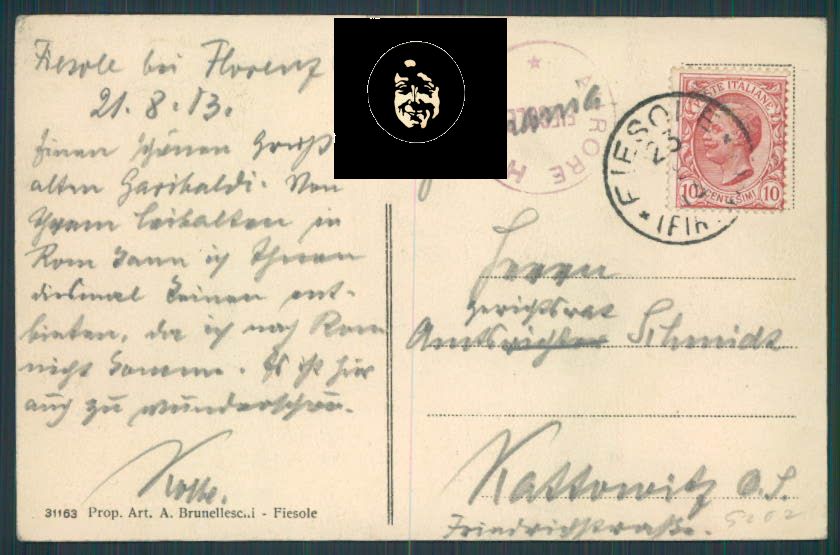 Fiesole bei Florenz
21.8.13.
Einen schönen Gruß
alten Garibaldi. Von
Ihrem Leibalten in
Rom kann ich Ihnen
diesmal keinen ent-
bieten, da ich nach Rom
nicht komme. Es ist hier
auch zu wunderschön.
31163 Prop. Art. A. Brunellesc..i - Fiesole
AURORE
FIESOLE
23
POSTE ITALIANE
10 CENTESIMI 10
Herrn
Gerichtsrat
Amtsrichter Schmidt
Kattowitz O.S.
Friedrichstraße.